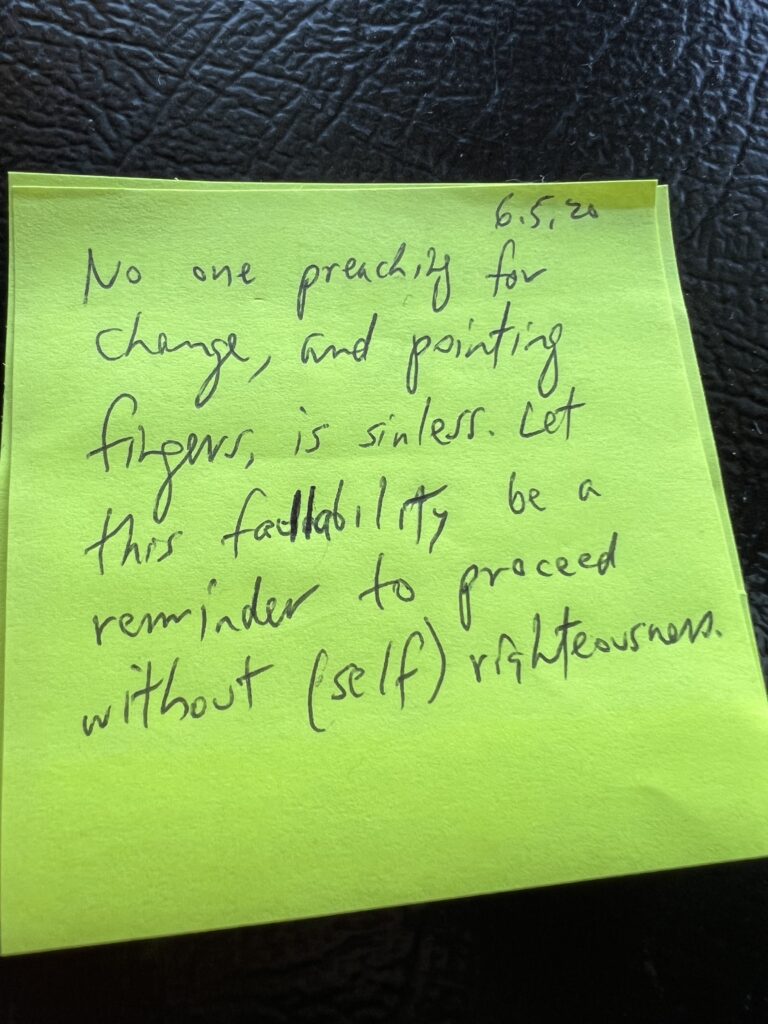 6.5.20
No one preaching for
change, and pointing
fingers, is sinless. Let
this fallability be a
reminder to proceed
without (self) righteousness.